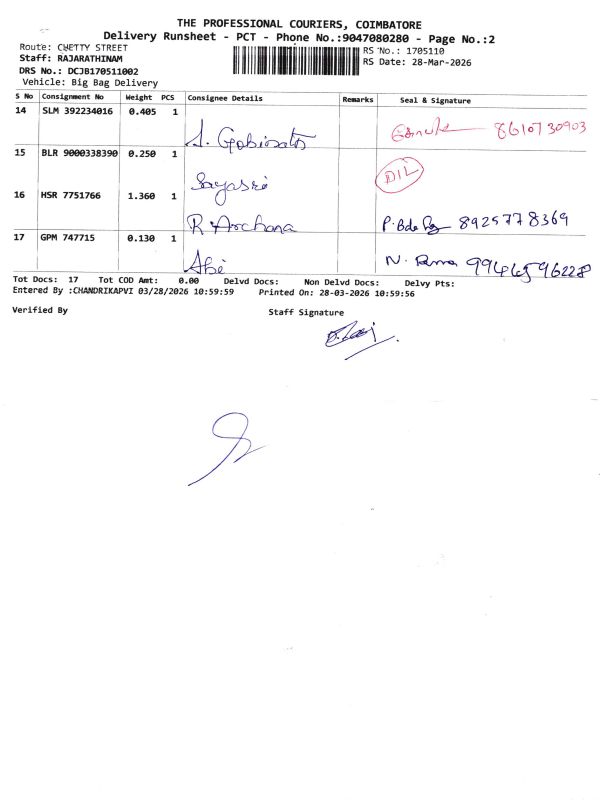 THE PROFESSIONAL COURIERS, COIMBATORE
Delivery Runsheet - PCT - Phone No.:9047080280 - Page No.:2
Route: CHETTY STREET
RS No.: 1705110
Staff: RAJARATHINAM
RS Date: 28-Mar-2026
DRS No.: DCJB170511002
Vehicle: Big Bag Delivery
S No Consignment No Weight PCS Consignee Details Remarks Seal & Signature
14 SLM 392234016 0.405 1
8610730903
15 BLR 9000338390 0.250 1
16 HSR 7751766 1.360 1 R. Archana 8925778369
17 GPM 747715 0.130 1 Abi
Tot Docs: 17 Tot COD Amt: 0.00 Delvd Docs: Non Delvd Docs: Delvy Pts:
Entered By :CHANDRIKAPVI 03/28/2026 10:59:59 Printed On: 28-03-2026 10:59:56
Verified By Staff Signature